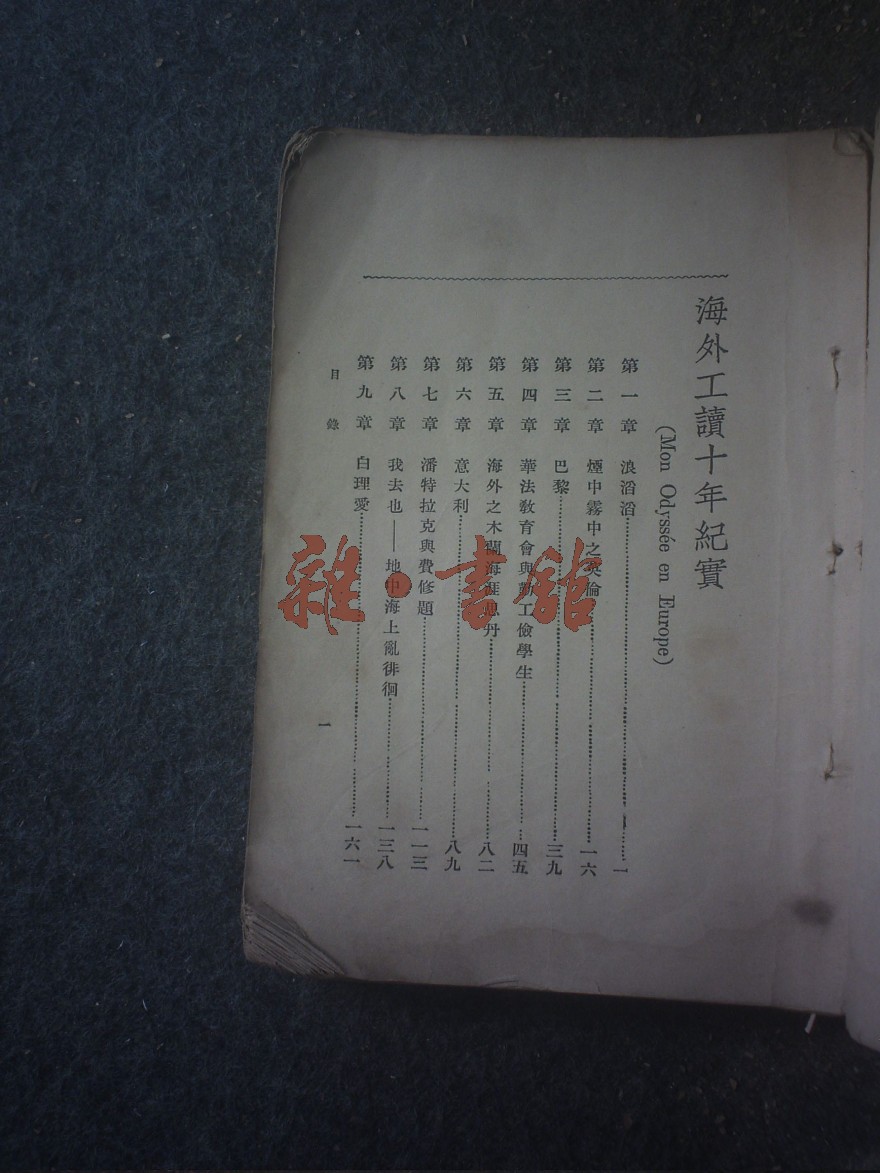 海外工讀十年紀實
(Mon Odyssée en Europe)
第一章 浪滔滔……一
第二章 煙中霧中之英倫……一六
第三章 巴黎……三九
第四章 華法教育會與勤工儉學生……四五
第五章 海外之木蘭海涯思丹……八二
第六章 意大利……八九
第七章 潘特拉克與費修題……一一三
第八章 我去也——地中海上亂徘徊……一三八
第九章 白理愛……一六一
目錄
一
雜·書館